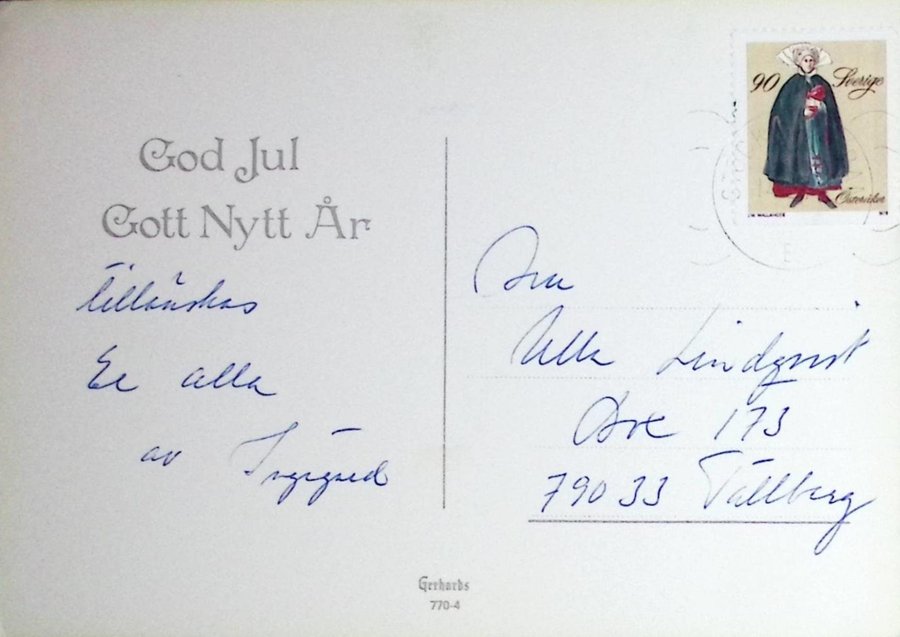 God Jul
Gott Nytt År
tillönskas
Er alla
av Ingegerd
90 Sverige
Österåker
Ulla Lindqvist
Box 173
790 33 Tällberg
Gerhards
770-4